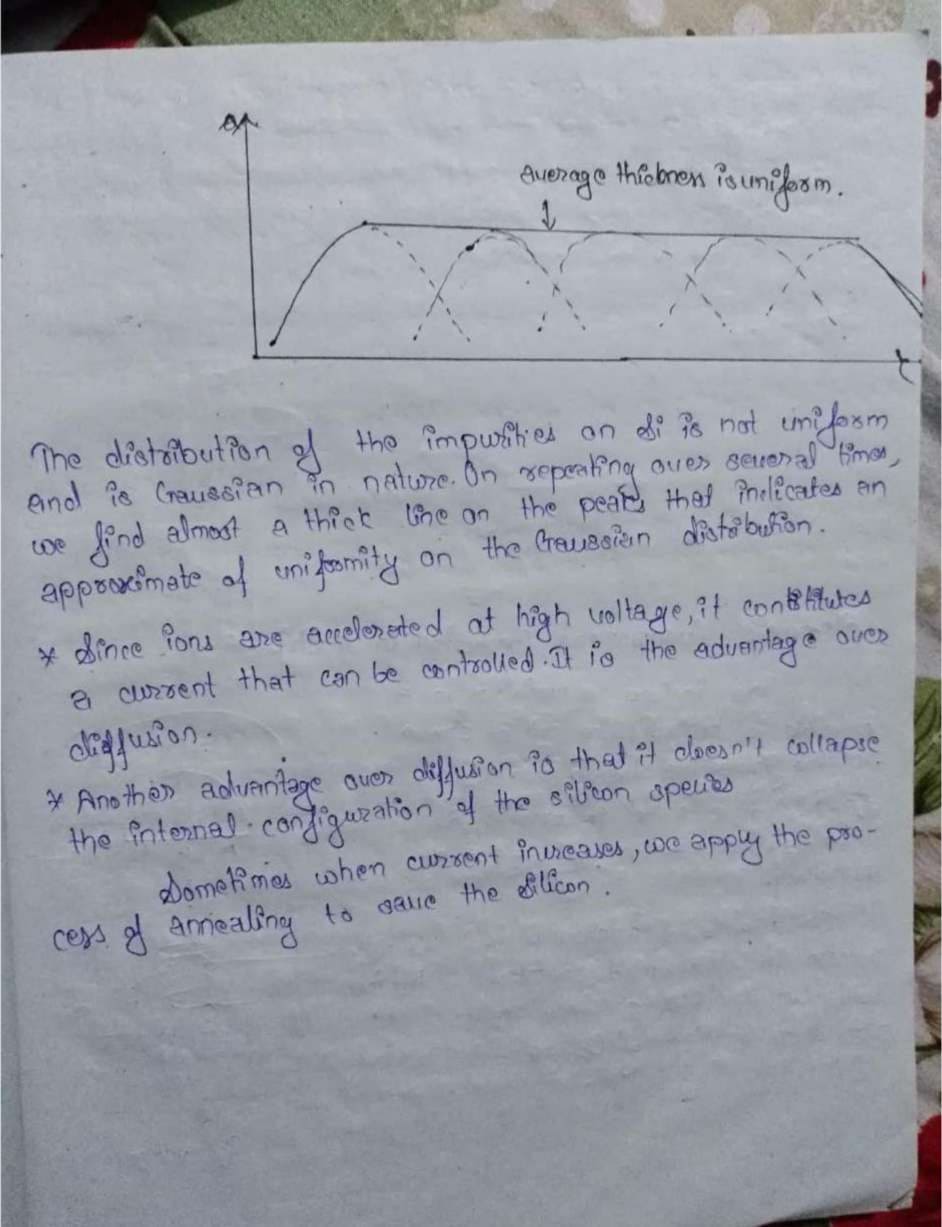 Average thickness is uniform.
t
The distribution of the impurities on Si is not uniform
and is Gaussian in nature. On repeating over several times,
we find almost a thick line on the peaks that indicates an
approximate of uniformity on the Gaussian distribution.
* Since ions are accelerated at high voltage, it constitutes
a current that can be controlled. It is the advantage over
diffusion.
* Another advantage over diffusion is that it doesn't collapse
the internal configuration of the silicon species
Sometimes when current increases, we apply the pro-
cess of annealing to save the silicon.